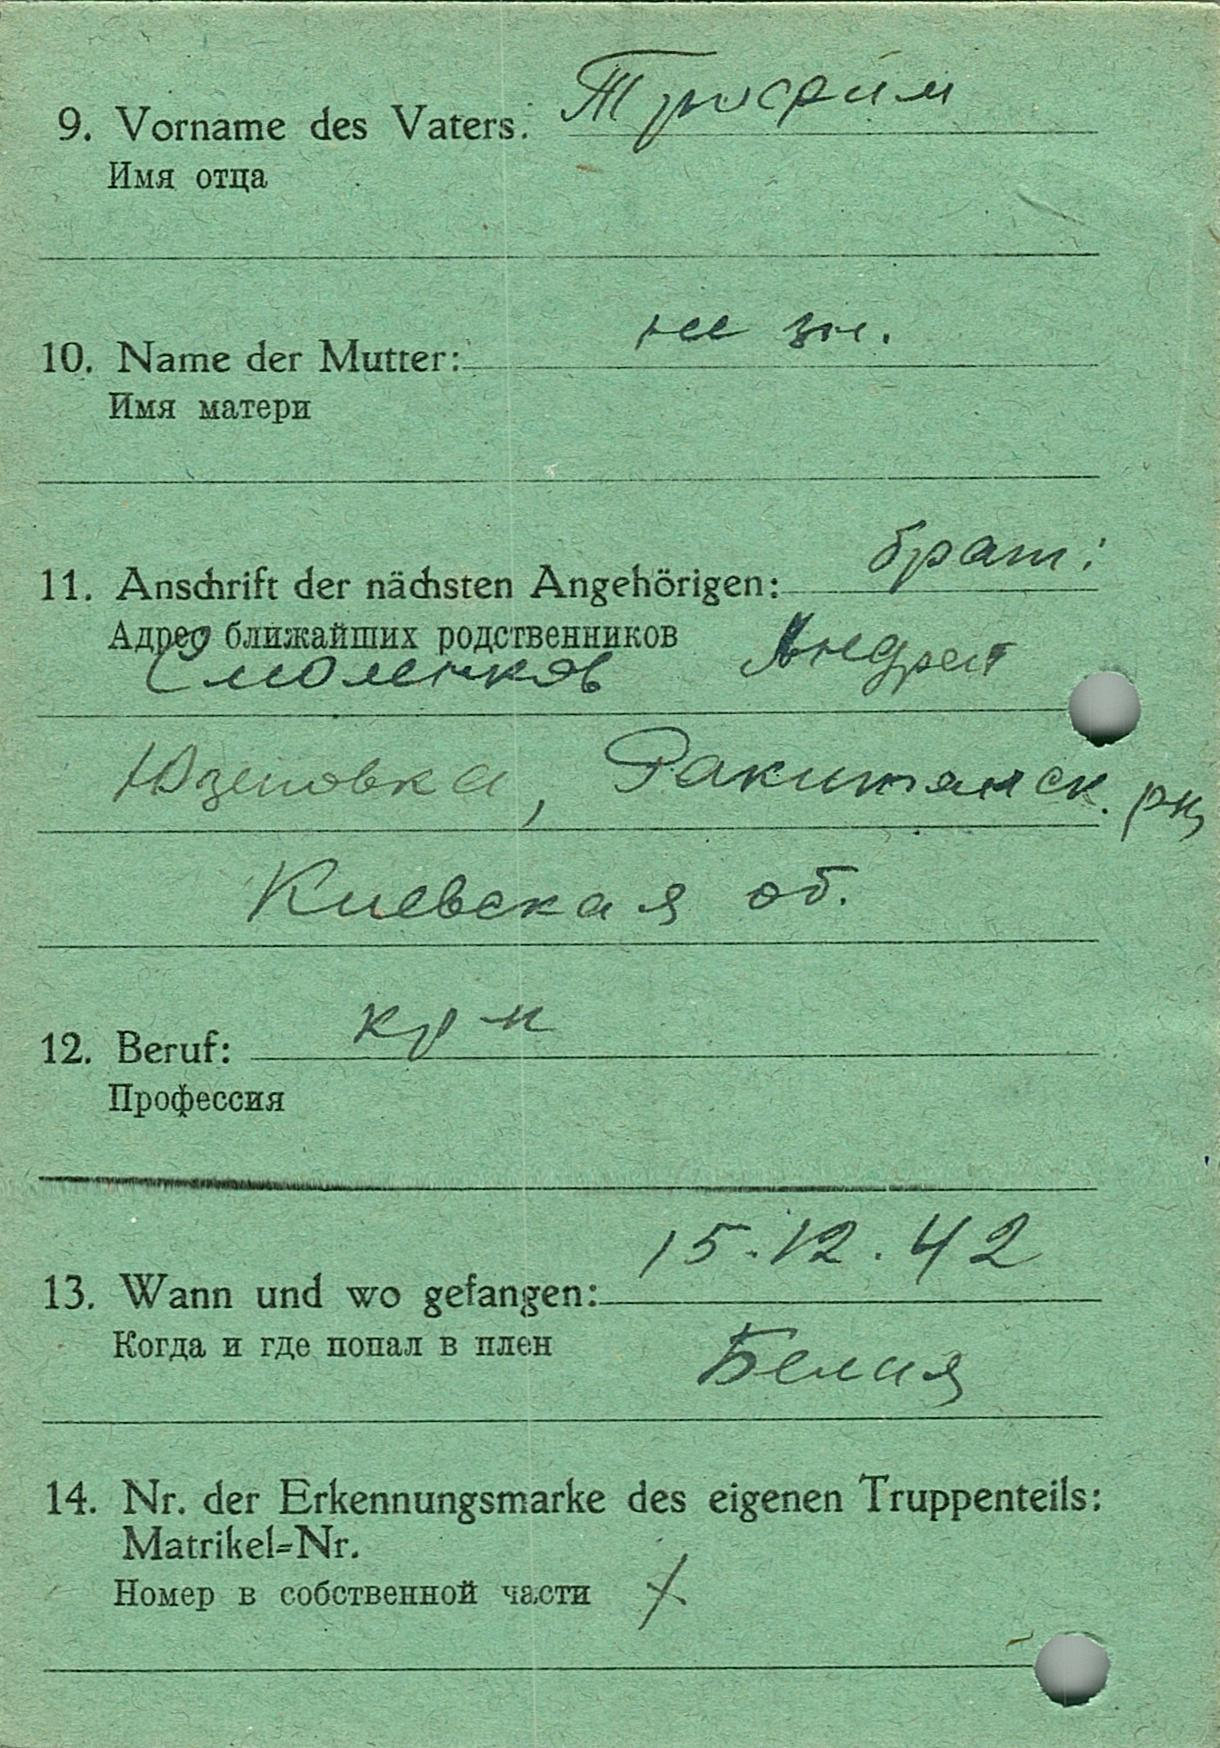 9. Vorname des Vaters: Трофим
Имя отца
10. Name der Mutter: не зн.
Имя матери
11. Anschrift der nächsten Angehörigen: брат:
Адрес ближайших родственников
Смоленков Андрей
Юзеповка, Ракитянск. рн
Киевская об.
12. Beruf: кр-н
Профессия
13. Wann und wo gefangen: 15.12.42
Когда и где попал в плен
14. Nr. der Erkennungsmarke des eigenen Truppenteils:
Matrikel=Nr.
Номер в собственной части